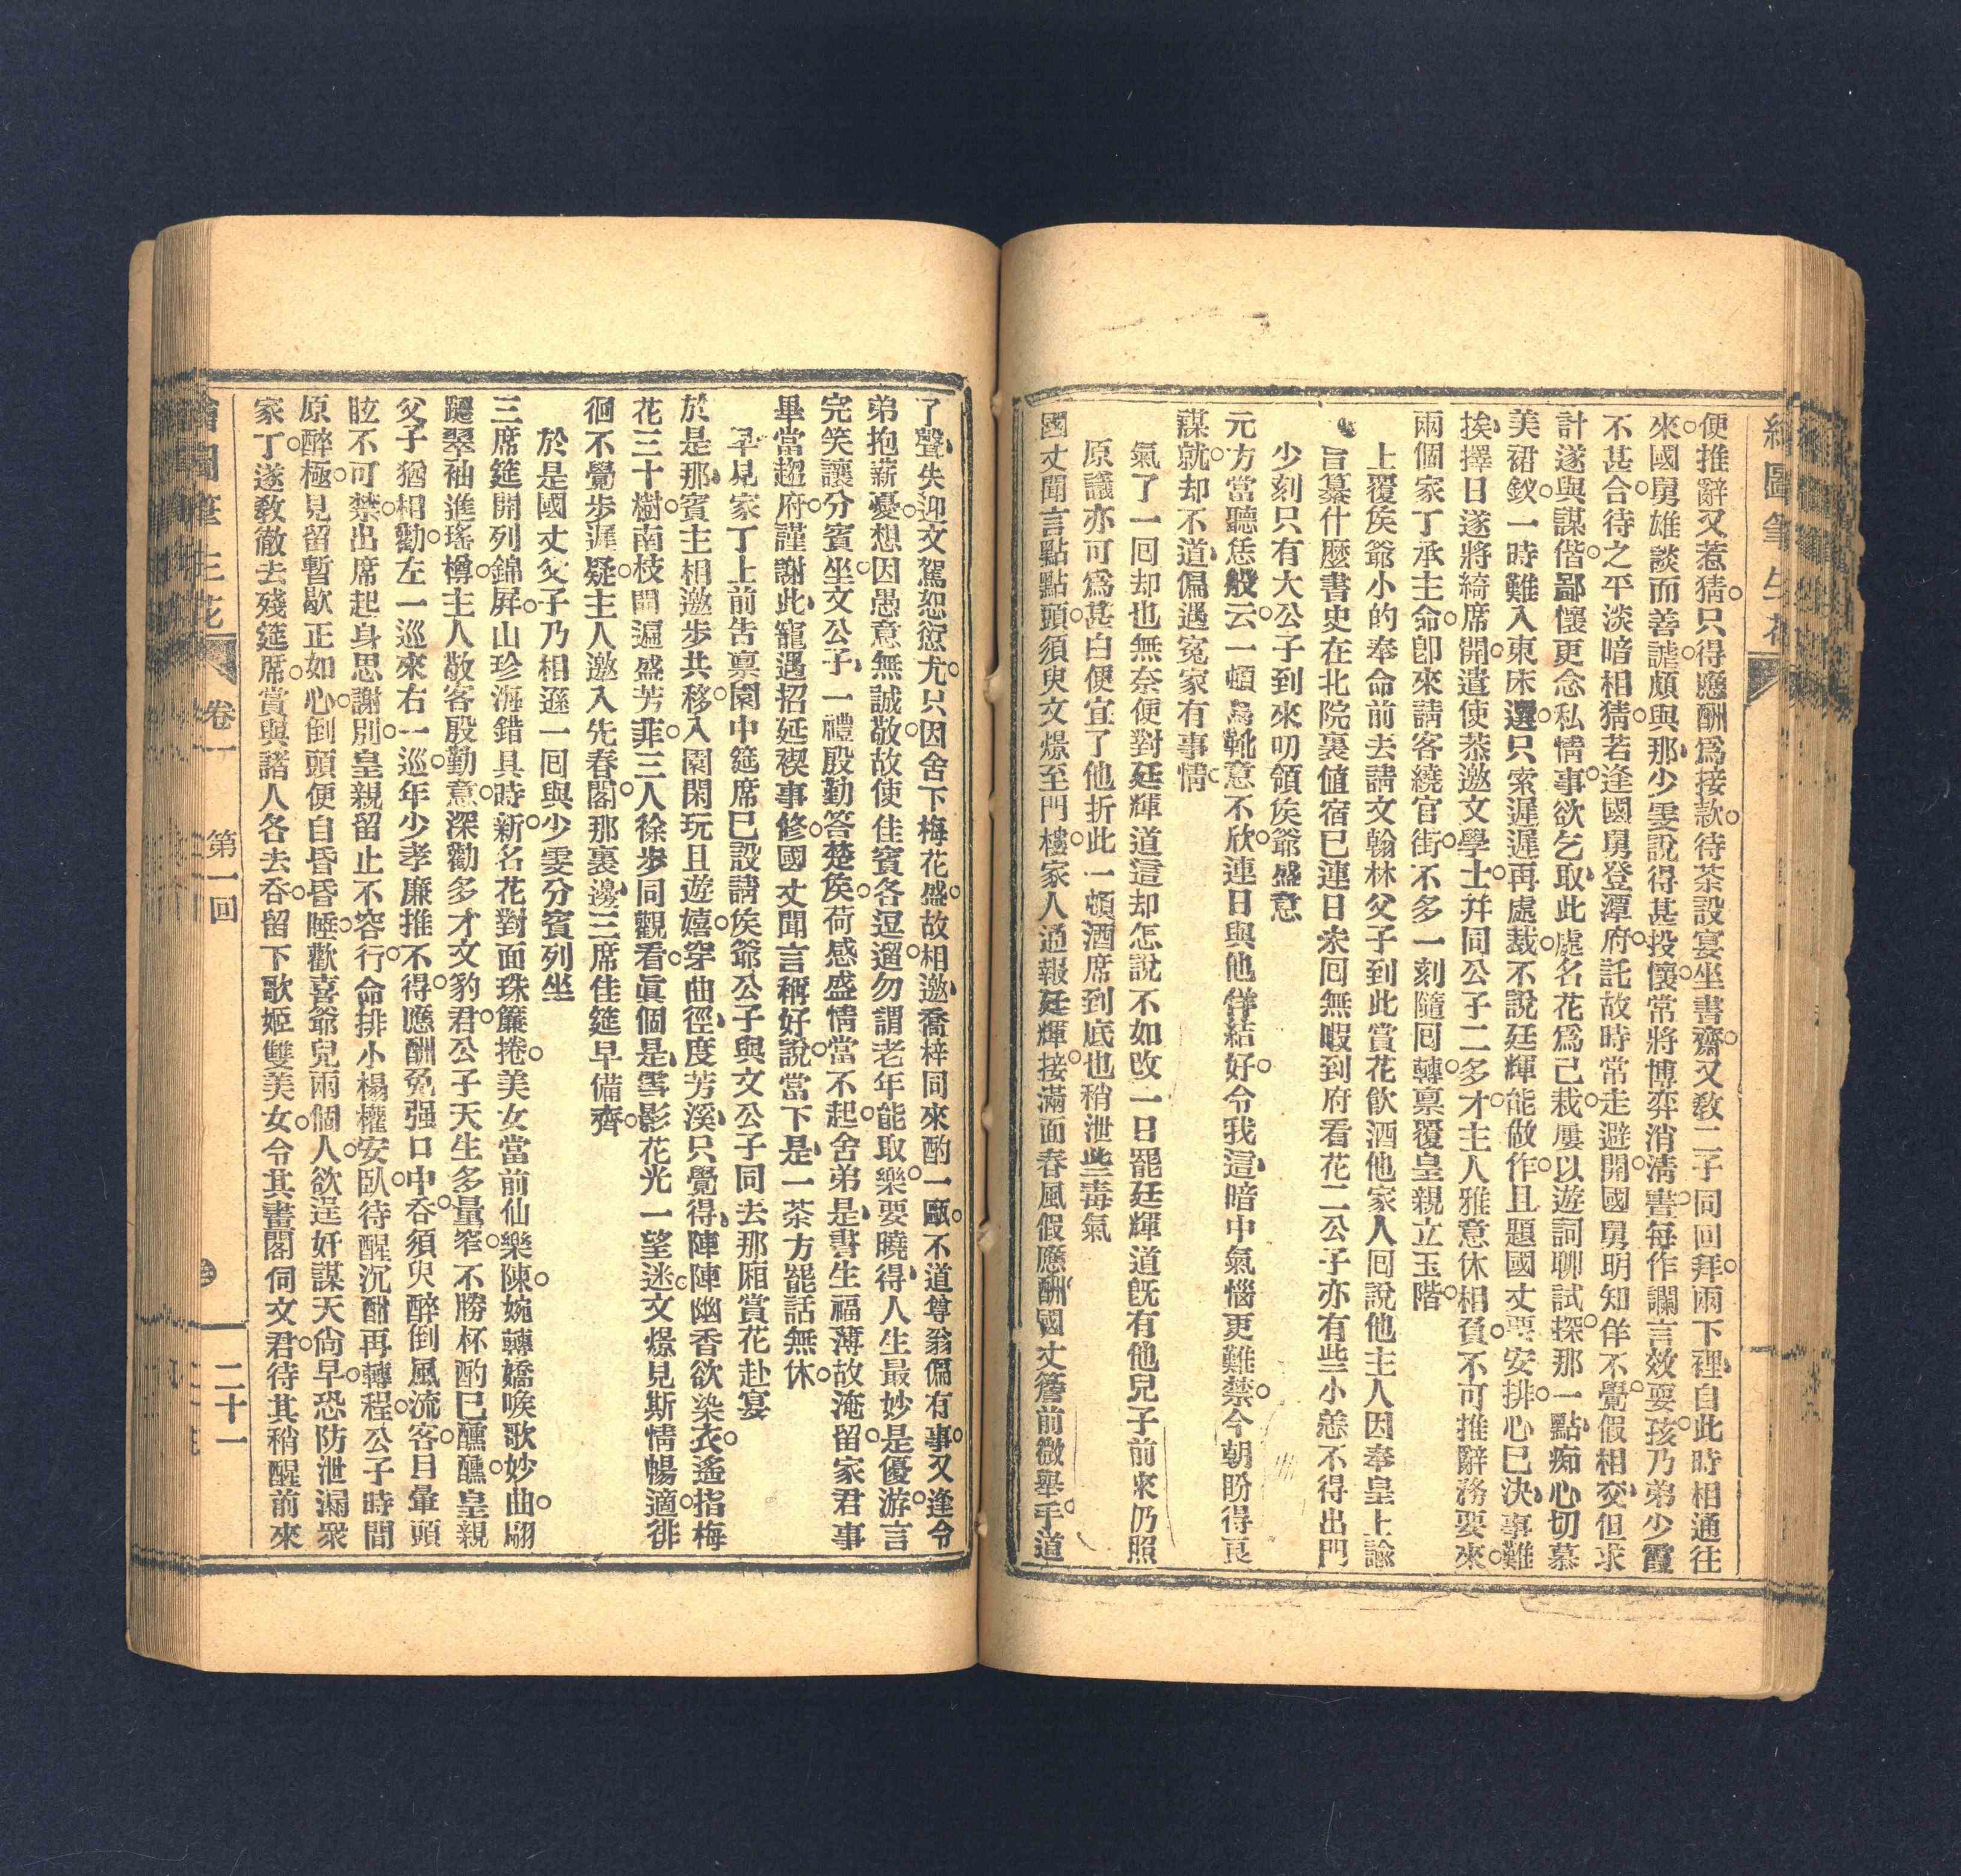 繪圖筆生花
便推辭又惹猜○只得應酬爲接款○待茶設宴坐書齋○又敎二子同回拜○兩下裡自此時相通往
來○國舅雄談而善謔○頗與那少雯說得甚投懷○常將博弈消淸晝○每作讕言效耍孩○乃弟少霞
不甚合○待之平淡暗相猜○若逢國舅登潭府○託故時常走避開○國舅明知佯不覺○假相交但求
計遂與謀偕○鄙懷更念私情事○欲乞取此處名花爲己栽○屢以遊詞聊試探○那一點痴心切慕
美裙釵○一時難入東床選○只索遲遲再處裁○不說廷輝能做作○且題國丈要安排○心已決事難
挨○擇日遂將綺席開○遣使恭邀文學士○幷同公子二多才○主人雅意休相負○不可推辭務要來○
兩個家丁承主命○卽來請客繞官街○不多一刻隨回轉○禀覆皇親立玉階○
上覆侯爺小的奉命前去請文翰林父子到此賞花飮酒他家人回說他主人因奉皇上諭
旨纂什麼書史在北院裏值宿已連日未回無暇到府看花二公子亦有些小恙不得出門
少刻只有大公子到來叨領侯爺盛意
元方當聽恁般云○一頓烏靴意不欣○連日與他佯結好○令我這暗中氣惱更難禁○今朝盼得良
謀就○却不道偏遇冤家有事情○
氣了一回却也無奈便對廷輝道這却怎說不如改一日罷廷輝道旣有他兒子前來仍照
原議亦可爲甚白便宜了他折此一頓酒席到底也稍泄些毒氣
國丈聞言點點頭○須臾文燝至門樓○家人通報廷輝接○滿面春風假應酬○國丈簷前微舉手○道
了聲失迎文駕恕愆尤○只因舍下梅花盛○故相邀喬梓同來酌一甌○不道尊翁偏有事○又逢令
弟抱薪憂○想因愚意無誠敬○故使佳賓各逗遛○勿謂老年能取樂○要曉得人生最妙是優游○言
完笑讓分賓坐○文公子一禮殷勤答楚侯○荷感盛情當不起○舍弟是書生福薄故淹留○家君事
畢當趨府○謹謝此寵遇招延禊事修○國丈聞言稱好說○當下是一茶方罷話無休○
早見家丁上前告禀園中筵席已設請侯爺公子與文公子同去那廂賞花赴宴
於是那○賓主相邀步共移○入園閑玩且遊嬉○穿曲徑度芳溪○只覺得陣陣幽香欲染衣○遙指梅
花三十樹○南枝開遍盛芳菲○三人徐步同觀看○眞個是雪影花光一望迷○文燝見斯情暢適○徘
徊不覺步遲疑○主人邀入先春閣○那裏邊三席佳筵早備齊○
於是國丈父子乃相遜一回與少雯分賓列坐
三席筵開列錦屏○山珍海錯具時新○名花對面珠簾捲○美女當前仙樂陳○婉轉嬌喉歌妙曲○翩
躚翠袖進瑤樽○主人敬客殷勤意○深勸多才文豹君○公子天生多量窄○不勝杯酌已醺醺○皇親
父子猶相勸○左一巡來右一巡○年少孝廉推不得○應酬勉强口中吞○須臾醉倒風流客○目暈頭
眩不可禁○出席起身思謝別○皇親留止不容行○命排小榻權安臥○待醒沉酣再轉程○公子時間
原醉極○見留暫歇正如心○倒頭便自昏昏睡○歡喜爺兒兩個人○欲逞奸謀天尙早○恐防泄漏衆
家丁○遂敎徹去殘筵席○賞與諸人各去吞○留下歌姬雙美女○令其畫閣伺文君○待其稍醒前來
繪圖筆生花 卷一 第一回 二十一